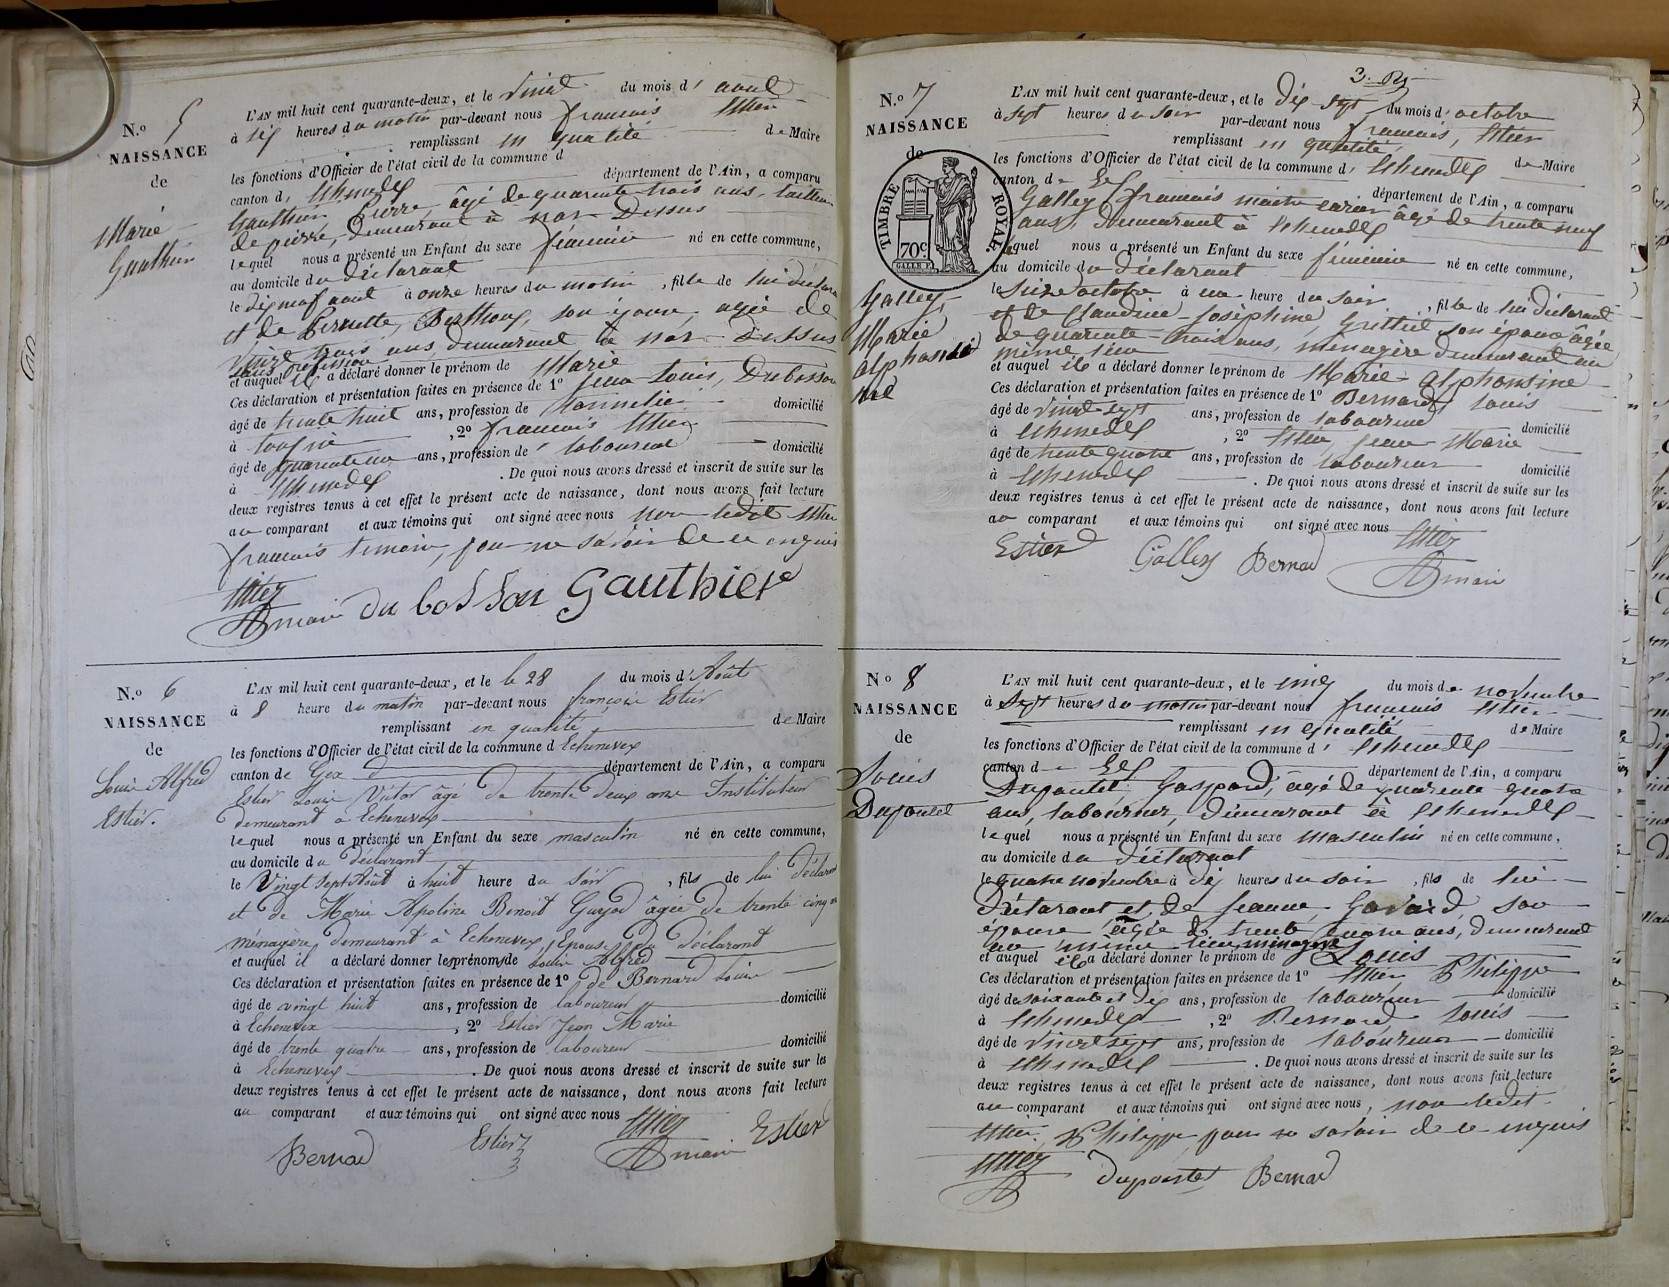 N.o 5
NAISSANCE
de
Marie
Gauthier
L'AN mil huit cent quarante-deux, et le vingt du mois d' aout
à six heures du matin par-devant nous francois Estier
remplissant en qualité de Maire
les fonctions d'Officier de l'état civil de la commune d
canton d' Echenevex département de l'Ain, a comparu
Gauthier Pierre âgé de quarante trois ans, tailleur
de pierre, demeurant à Dessus
lequel nous a présenté un Enfant du sexe féminin né en cette commune,
au domicile du déclarant
le dix neuf aout à onze heures du matin, fille de lui déclarant
et de Pernette, Berthoux, son épouse, agée de
trois ans, demeurant à Dessus
sans profession
et auquel il a déclaré donner le prénom de Marie
Ces déclaration et présentation faites en présence de 1o Jean Louis, Dubosson
âgé de trente huit ans, profession de domicilié
à , 2o francois Estier
âgé de quarante un ans, profession de laboureur domicilié
à Echenevex . De quoi nous avons dressé et inscrit de suite sur les
deux registres tenus à cet effet le présent acte de naissance, dont nous avons fait lecture
au comparant et aux témoins qui ont signé avec nous non ledit Estier
francois temoin, pour ne savoir de ce enquis
Estier
maire du bosson Gauthier
N.o 6
NAISSANCE
de
Louis Alfred
Estier.
L'AN mil huit cent quarante-deux, et le le 28 du mois d' Août
à 8 heure du matin par-devant nous françois Estier
remplissant en qualité de Maire
les fonctions d'Officier de l'état civil de la commune d Echenevex
canton de Gex département de l'Ain, a comparu
Estier Louis Victor âgé de trente deux ans Instituteur
demeurant à Echenevex
lequel nous a présenté un Enfant du sexe masculin né en cette commune,
au domicile du déclarant
le Vingt Sept Août à huit heure du soir, fils de lui déclarant
et de Marie Apoline Benoit Guyod âgée de trente cinq ans
ménagère demeurant à Echenevex, Epouse du déclarant
et auquel il a déclaré donner les prénoms de Louis Alfred
Ces déclaration et présentation faites en présence de 1o de Bernard Louis
âgé de vingt huit ans, profession de laboureur domicilié
à Echenevex , 2o Estier Jean Marie
âgé de trente quatre ans, profession de laboureur domicilié
à Echenevex . De quoi nous avons dressé et inscrit de suite sur les
deux registres tenus à cet effet le présent acte de naissance, dont nous avons fait lecture
au comparant et aux témoins qui ont signé avec nous
Bernard Estier Estier maire Estier
3.
N.o 7
NAISSANCE
de
TIMBRE ROYAL.
70c.
Galley,
Marie
alphonsi
ne
L'AN mil huit cent quarante-deux, et le dix sept du mois d' octobre
à sept heures du soir par-devant nous francois, Estier
remplissant en qualité de Maire
les fonctions d'Officier de l'état civil de la commune d' Echenevex
canton de Gex département de l'Ain, a comparu
Galley francois maitre carrier âgé de trente neuf
ans, demeurant à Echenevex
lequel nous a présenté un Enfant du sexe féminin né en cette commune,
au domicile du déclarant
le seize octobre à une heure du soir, fille de lui déclarant
et de Claudine Josephine, son épouse âgée
de quarante trois ans, ménagère demeurant au
même lieu
et auquel il a déclaré donner le prénom de Marie alphonsine
Ces déclaration et présentation faites en présence de 1o Bernard Louis
âgé de vingt sept ans, profession de laboureur domicilié
à Echenevex , 2o Estier, Jean Marie
âgé de trente quatre ans, profession de laboureur domicilié
à Echenevex . De quoi nous avons dressé et inscrit de suite sur les
deux registres tenus à cet effet le présent acte de naissance, dont nous avons fait lecture
au comparant et aux témoins qui ont signé avec nous
Estier Galley Bernard Estier
maire
No 8
NAISSANCE
de
Louis
Dupontet
L'AN mil huit cent quarante-deux, et le cinq du mois de novembre
à sept heures du matin par-devant nous francois Estier
remplissant en qualité de Maire
les fonctions d'Officier de l'état civil de la commune d' Echenevex
canton d Gex département de l'Ain, a comparu
Dupontet Gaspard, âgé de quarante quatre
ans, laboureur, demeurant à Echenevex
lequel nous a présenté un Enfant du sexe masculin né en cette commune,
au domicile du déclarant
le quatre novembre à dix heures du soir, fils de lui
déclarant et de Jeanne Gavard, son
épouse âgée de trente quatre ans, demeurant
au même lieu ménagère
et auquel il a déclaré donner le prénom de Louis
Ces déclaration et présentation faites en présence de 1o Estier Philippe
âgé de soixante et dix ans, profession de laboureur domicilié
à Echenevex , 2o Bernard Louis
âgé de vingt sept ans, profession de laboureur domicilié
à Echenevex . De quoi nous avons dressé et inscrit de suite sur les
deux registres tenus à cet effet le présent acte de naissance, dont nous avons fait lecture
au comparant et aux témoins qui ont signé avec nous, non ledit
Estier, Philippe pour ne savoir de ce enquis
Estier Dupontet Bernard